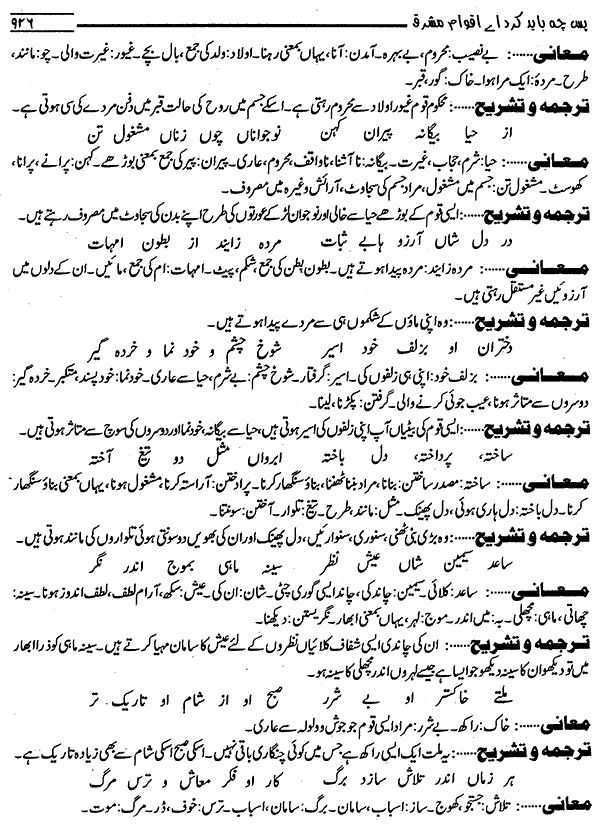 پس چہ باید کرد اے اقوام مشرق ۹۲۶
معانی......: بے نصیب: محروم، بے بہرہ۔ آمدن: آنا، یہاں بمعنی رہنا۔ اولاد: ولد کی جمع، بال بچے۔ غیور: غیرت والی۔ چو: مانند،
طرح۔ مردۂ: ایک مرا ہوا۔ خاک: گور، قبر۔
ترجمہ و تشریح......: محکوم قوم غیور اولاد سے محروم رہتی ہے۔ اسکے جسم میں روح کی حالت قبر میں دفن مردے کی سی ہوتی ہے۔
از حیا بیگانہ پیران کہن نوجواناں چوں زناں مشغول تن
معانی......: حیا: شرم، حجاب، غیرت۔ بیگانہ: نا آشنا، ناواقف، محروم، عاری۔ پیران: پیر کی جمع بمعنی بوڑھے۔ کہن: پرانے، پرانا،
کھوسٹ۔ مشغول تن: جسم میں مشغول، مراد جسم کی سجاوٹ، آرائش وغیرہ میں مصروف۔
ترجمہ و تشریح......: ایسی قوم کے بوڑھے حیا سے خالی اور نوجوان لڑکے عورتوں کی طرح اپنے بدن کی سجاوٹ میں مصروف رہتے ہیں۔
در دل شاں آرزو ہا بے ثبات مردہ زایند از بطون امہات
معانی......: مردہ زایند: مردہ پیدا ہوتے ہیں۔ بطون بطن کی جمع، شکم، پیٹ۔ امہات: ام کی جمع، مائیں۔ ان کے دلوں میں
آرزوئیں غیر مستقل رہتی ہیں۔
ترجمہ و تشریح......: وہ اپنی ماؤں کے شکموں ہی سے مردے پیدا ہوتے ہیں۔
دختران او بزلف خود اسیر شوخ چشم و خود نما و خردہ گیر
معانی......: بزلف خود: اپنی ہی زلفوں کی۔ اسیر: گرفتار۔ شوخ چشم: بے شرم، حیا سے عاری۔ خودنما: خود پسند، متکبر۔ خردہ گیر:
دوسروں سے متاثر ہونا، عیب جوئی کرنے والی۔ گرفتن: پکڑنا، لینا۔
ترجمہ و تشریح......: ایسی قوم کی بیٹیاں آپ اپنی زلفوں کی اسیر ہوتی ہیں، حیا سے بیگانہ، خودنما اور دوسروں کی سوچ سے متاثر ہوتی ہیں۔
ساختہ، پرداختہ، دل باختہ ابرواں مثل دو تیغ آختہ
معانی......: ساختہ: مصدر ساختن: بنانا، مراد بننا ٹھننا، بناؤ سنگھار کرنا۔ پرادختن: آراستہ کرنا، مشغول ہونا، یہاں بمعنی بناؤ سنگھار
کرنا۔ دل باختہ: دل ہاری ہوئی، دل پھینک۔ مثل: مانند، طرح۔ تیغ: تلوار۔ آختن: سونتنا۔
ترجمہ و تشریح......: وہ بڑی بنی ٹھنی، سنوری، سنوارئیں، دل پھینک اور ان کی بھویں دو سونتی ہوئی تلواروں کی مانند ہوتی ہیں۔
ساعد سیمین شاں عیش نظر سینہ ماہی بموج اندر نگر
معانی......: ساعد: کلائی۔ سیمین: چاند کی، چاند ایسی گوری چٹی۔ شان: ان کی۔ عیش: سکھ، آرام لطف، لطف اندوز ہونا۔ سینہ:
چھاتی، ماہی: مچھلی۔ بہ: میں اندر۔ موج: لہر، یہاں بمعنی ابھار۔ نگریستن: دیکھنا۔
ترجمہ و تشریح......: ان کی چاندی ایسی شفاف کلائیاں نظروں کے لئے عیش کا سامان مہیا کرتے ہیں۔ سینہ ماہی کو ذرا ابھار
میں تو دیکھو ان کا سینہ دیکھو جو ایسا ہے جیسے لہروں اندر مچھلی کا سینہ ہو۔
ملتے خاکستر او بے شرر صبح او از شام او تاریک تر
معانی......: خاک: راکھ۔ بے شرر: مراد ایسی قوم جو جوش و ولولہ سے عاری۔
ترجمہ و تشریح......: یہ ملت ایک ایسی راکھ ہے جس میں کوئی چنگاری باقی نہیں۔ اسکی صبح اسکی شام سے بھی زیادہ تاریک ہے۔
ہر زماں اندر تلاش سازد برگ کار او فکر معاش و ترس مرگ
معانی......: تلاش: جستجو، کھوج۔ ساز: اسباب، سامان۔ برگ: سامان، اسباب۔ ترس: خوف، ڈر۔ مرگ: موت۔